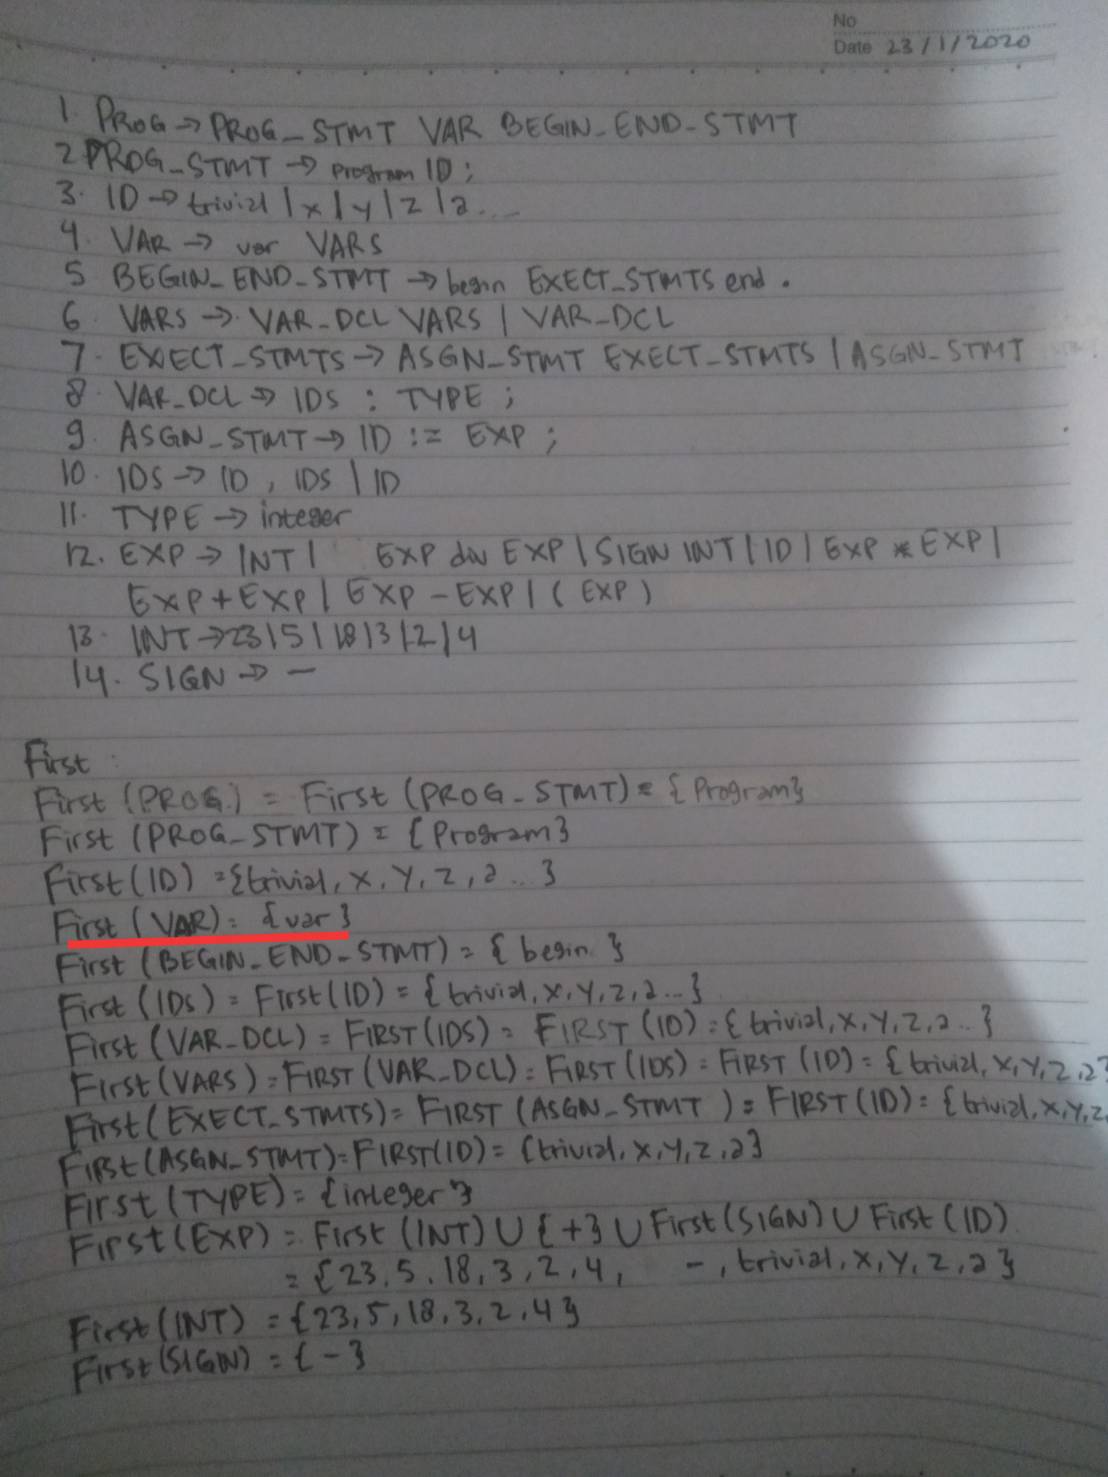 No
Date 23/1/2020
1. PROG → PROG_STMT VAR BEGIN_END_STMT
2 PROG_STMT → program ID ;
3. ID → trivial | x | y | z | a ...
4. VAR → var VARS
5 BEGIN_END_STMT → begin EXECT_STMTS end .
6 VARS → VAR_DCL VARS | VAR_DCL
7. EXECT_STMTS → ASGN_STMT EXECT_STMTS | ASGN_STMT
8. VAR_DCL → IDS : TYPE ;
9. ASGN_STMT → ID := EXP ;
10. IDS → ID , IDS | ID
11. TYPE → integer
12. EXP → INT | EXP div EXP | SIGN INT | ID | EXP * EXP |
EXP + EXP | EXP - EXP | ( EXP )
13. INT → 23 | 5 | 18 | 3 | 2 | 4
14. SIGN → -
First :
First (PROG) = First (PROG_STMT) = { Program}
First (PROG_STMT) = { Program}
First (ID) = {trivial, x, y, z, a ... }
First ( VAR) = {var }
First (BEGIN_END_STMT) = { begin }
First (IDs) = First (ID) = { trivial, x, y, z, a ... }
First (VAR_DCL) = FIRST (IDS) = FIRST (ID) = { trivial, x, y, z, a .. }
First (VARS) = FIRST (VAR_DCL) = FIRST (IDS) = FIRST (ID) = { trivial, x, y, z, a}
First (EXECT_STMTS) = FIRST (ASGN_STMT ) = FIRST (ID) = { trivial, x, y, z,
FIRST (ASGN_STMT) = FIRST(ID) = {trivial, x, y, z, a}
First (TYPE) = {integer}
First (EXP) = First (INT) U { + } U First (SIGN) U First (ID)
= {23, 5, 18, 3, 2, 4, -, trivial, x, y, z, a }
First (INT) = {23, 5, 18, 3, 2, 4 }
First (SIGN) = { - }